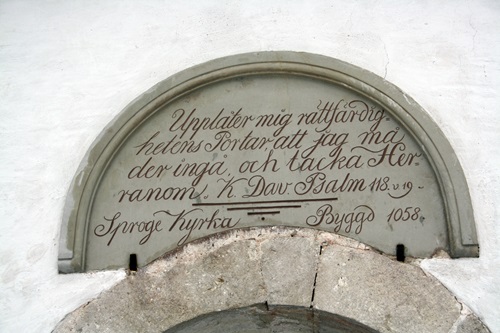 Upplåter mig rättfärdig-
hetens Portar att jag må
der ingå, och tacka Her-
ranom, K. Dav. Psalm 118. v 19-
Sproge Kyrka Byggd 1058.